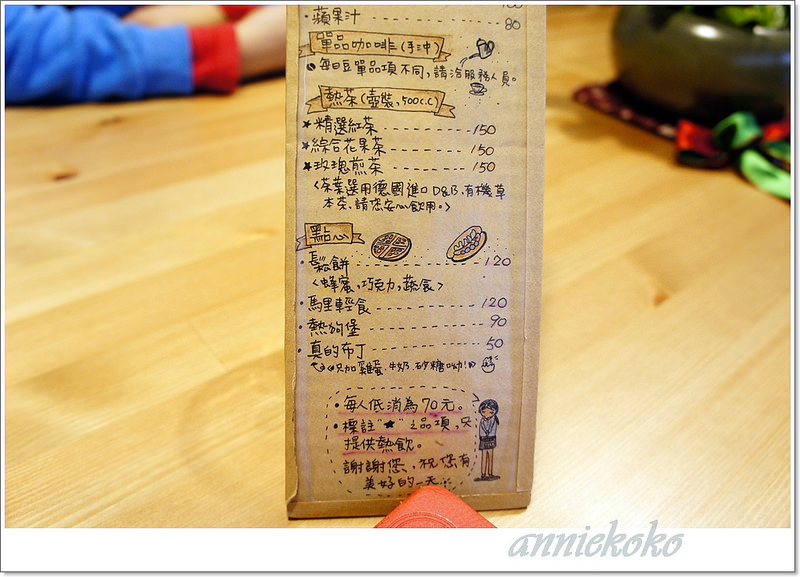 蘋果汁 80
單品咖啡(手沖)
每日豆單品項不同,請洽服務人員。
熱茶(壺裝,500c.c)
★精選紅茶 150
★綜合花果茶 150
★玫瑰煎茶 150
<茶葉選用德國進口D&B,有機草
本茶,請您安心飲用。>
點心
·鬆餅 120
<蜂蜜,巧克力,蔬食>
·馬里輕食 120
·熱狗堡 90
·真的布丁 50
只加雞蛋.牛奶.砂糖呦!
·每人低消為70元。
·標註"★"之品項,只
提供熱飲。
謝謝您,祝您有
美好的一天
anniekoko